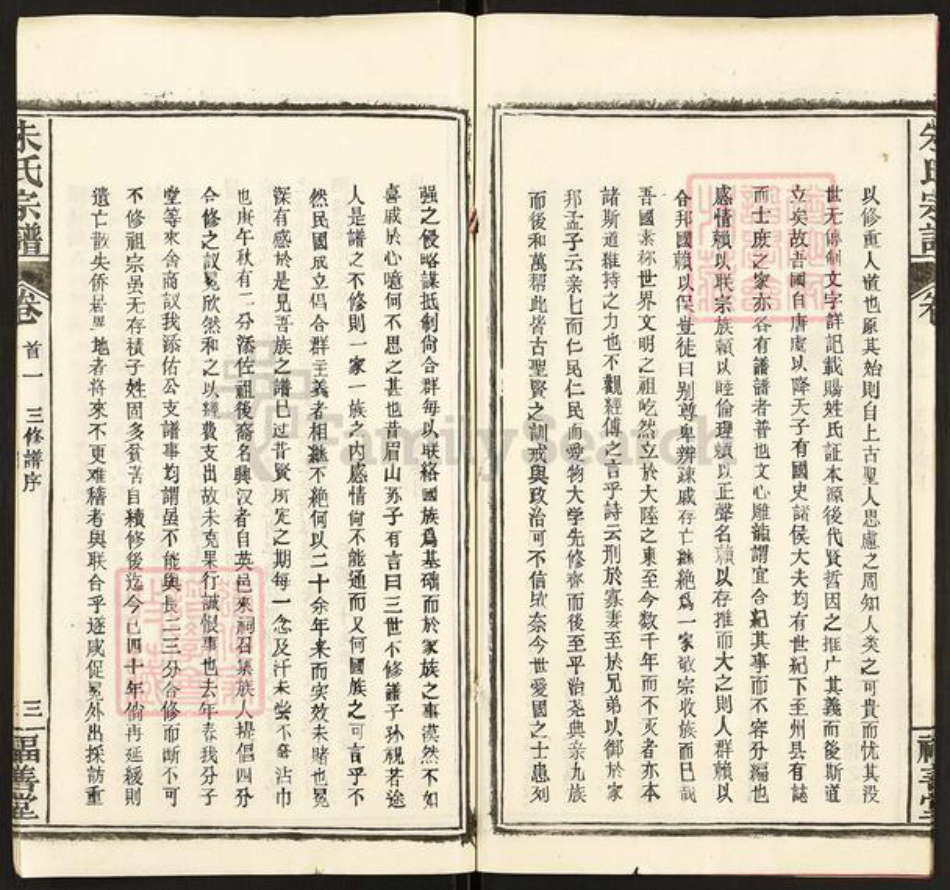 以修重人道也原其始則自上古聖人思慮之周知人类之可貴而忧其没
世无傳制文字詳記載賜姓氏証本源後代賢哲因之推广其義而後斯道
立矣故吾國自唐虞以降天子有國史諸侯大夫均有世紀下至州县有誌
而士庶之家亦各有譜譜者普也文心雕龍謂宜合紀其事而不容分編也
感情賴以联宗族賴以睦倫理賴以正聲名賴以存推而大之則人群賴以
合邦國賴以保豈徒曰别尊卑辨疎戚存亡継絶為一家敬宗收族而已哉
吾國素称世界文明之祖屹然立於大陸之東至今数千年而不灭者亦本
諸斯道維持之力也不觀經傳之言乎詩云刑於寡妻至於兄弟以御於家
邦孟子云亲七而仁民仁民而爱物大学先修齊而後至平治尧典亲九族
而後和萬邦此皆古聖賢之訓戒與政治可不信欤奈今世爱國之士患列
强之侵略謀抵制尙合群每以联絡國族為基础而於家族之事漠然不如
喜戚於心噫何不思之甚也昔眉山苏子有言曰三世不修譜子孙視若途
人是譜之不修則一家一族之内感情尙不能通而又何國族之可言乎不
然民國成立倡合群主義者相継不絶何以二十余年来而实效未睹也冕
深有感於是見吾族之譜已过昔賢所定之期每一念及汗未尝不沾巾
也庚午秋有二分添佐祖後裔名興汉者自英邑来祠召集族人提倡四分
合修之议冕欣然和之以經費支出故未克果行誠恨事也去年春我分子
堂等来舍商议我添佑公支譜事均謂虽不能與長二三分合修而断不可
不修祖宗虽无存積子姓固多貧苦自續修後迄今已四十年倘再延緩則
遺亡散失侨居異地者将来不更难稽者與联合乎遂咸促冕外出採訪重
朱氏宗譜
卷
首一
三修譜序
三
福善堂
朱氏宗譜
卷
福善堂
FamilySearch